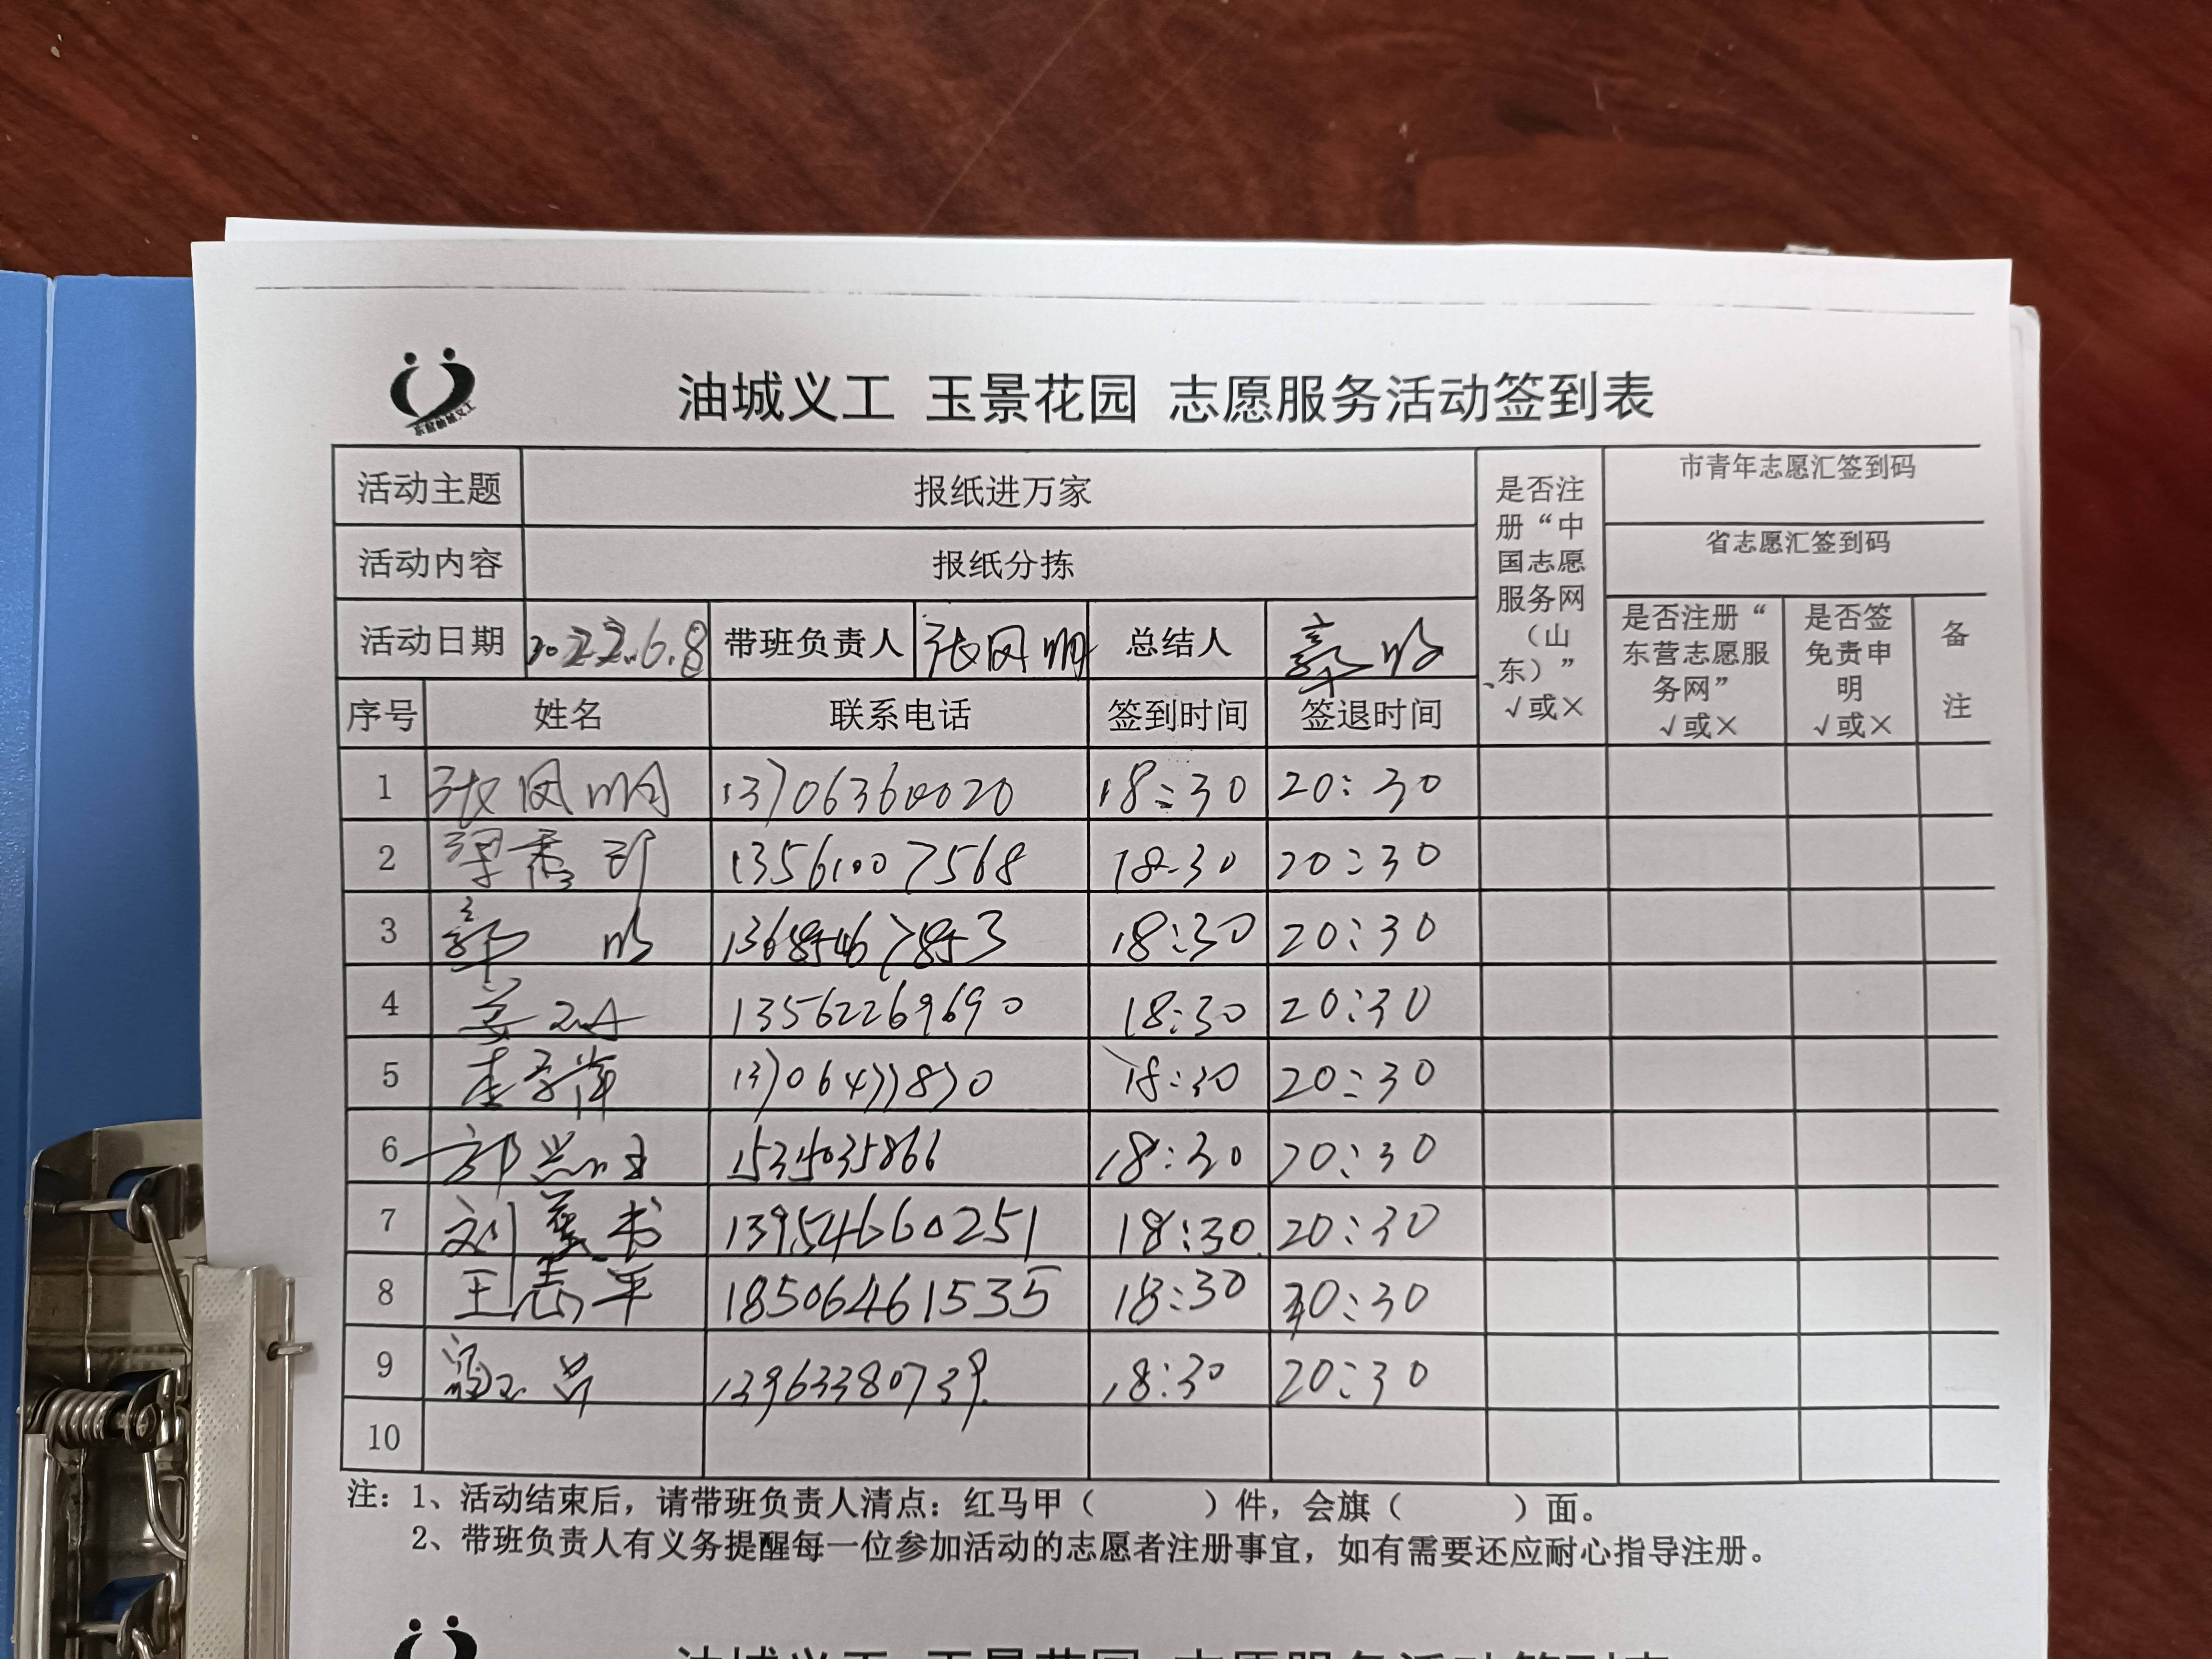 东营油城义工
油城义工 玉景花园 志愿服务活动签到表
活动主题 报纸进万家
活动内容 报纸分拣
是否注册“中国志愿服务网（山东）” √或×
市青年志愿汇签到码
省志愿汇签到码
活动日期 2022.6.8 带班负责人 张凤明 总结人
是否注册“东营志愿服务网” √或×
是否签免责申明 √或×
备注
序号 姓名 联系电话 签到时间 签退时间
1 张凤明 13706360020 18:30 20:30
2 13561007568 18:30 20:30
3 13685467853 18:30 20:30
4 13562269690 18:30 20:30
5 13706477870 18:30 20:30
6 18:30 20:30
7 13954660251 18:30 20:30
8 王志平 18506461535 18:30 20:30
9 13963380739 18:30 20:30
10
注：1、活动结束后，请带班负责人清点：红马甲（ ）件，会旗（ ）面。
2、带班负责人有义务提醒每一位参加活动的志愿者注册事宜，如有需要还应耐心指导注册。
油城义工 玉景花园 志愿服务活动签到表